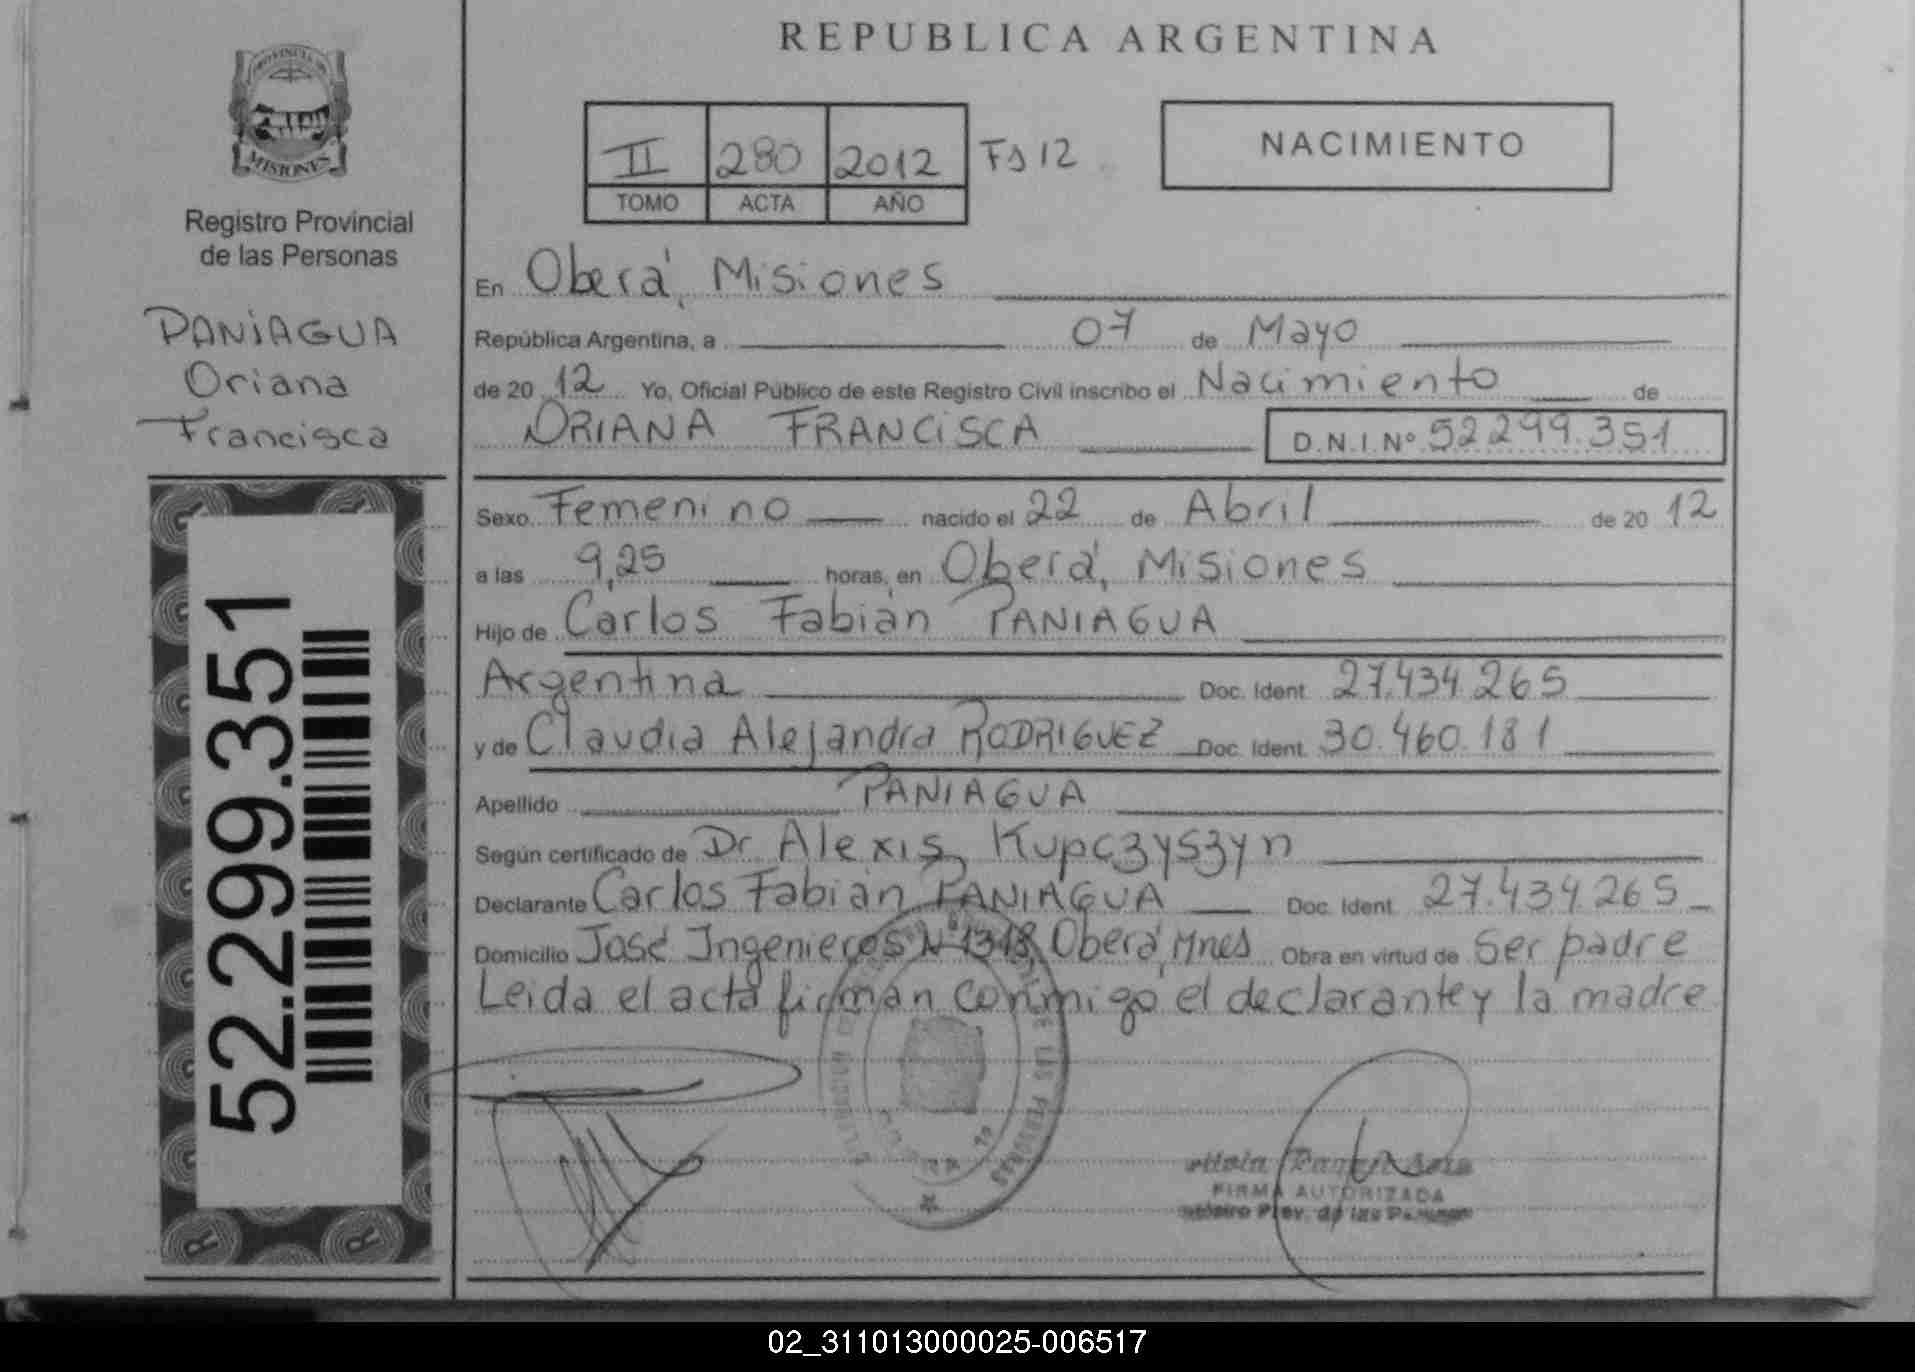 REPUBLICA ARGENTINA
PROVINCIA DE
MISIONES
Registro Provincial
de las Personas
PANIAGUA
Oriana
Francisca
52.299.351
II 280 2012 Fs 12
TOMO ACTA AÑO
NACIMIENTO
En Oberá, Misiones
República Argentina, a 07 de Mayo
de 20 12 Yo, Oficial Público de este Registro Civil inscribo el Nacimiento de
ORIANA FRANCISCA D.N.I.Nº 52299.351
Sexo Femenino nacido el 22 de Abril de 20 12
a las 9,25 horas, en Oberá, Misiones
Hijo de Carlos Fabián PANIAGUA
Argentina Doc. Ident. 27.434.265
y de Claudia Alejandra RODRIGUEZ Doc. Ident. 30.460.181
Apellido PANIAGUA
Según certificado de Dr Alexis Kupczyszyn
Declarante Carlos Fabián PANIAGUA Doc. Ident. 27.434.265
Domicilio José Ingenieros Nº1318, Oberá, Mnes Obra en virtud de Ser padre
Leida el acta firman conmigo el declarante y la madre
DE LAS PERSONAS
FIRMA AUTORIZADA
Prov. de las
02_311013000025-006517